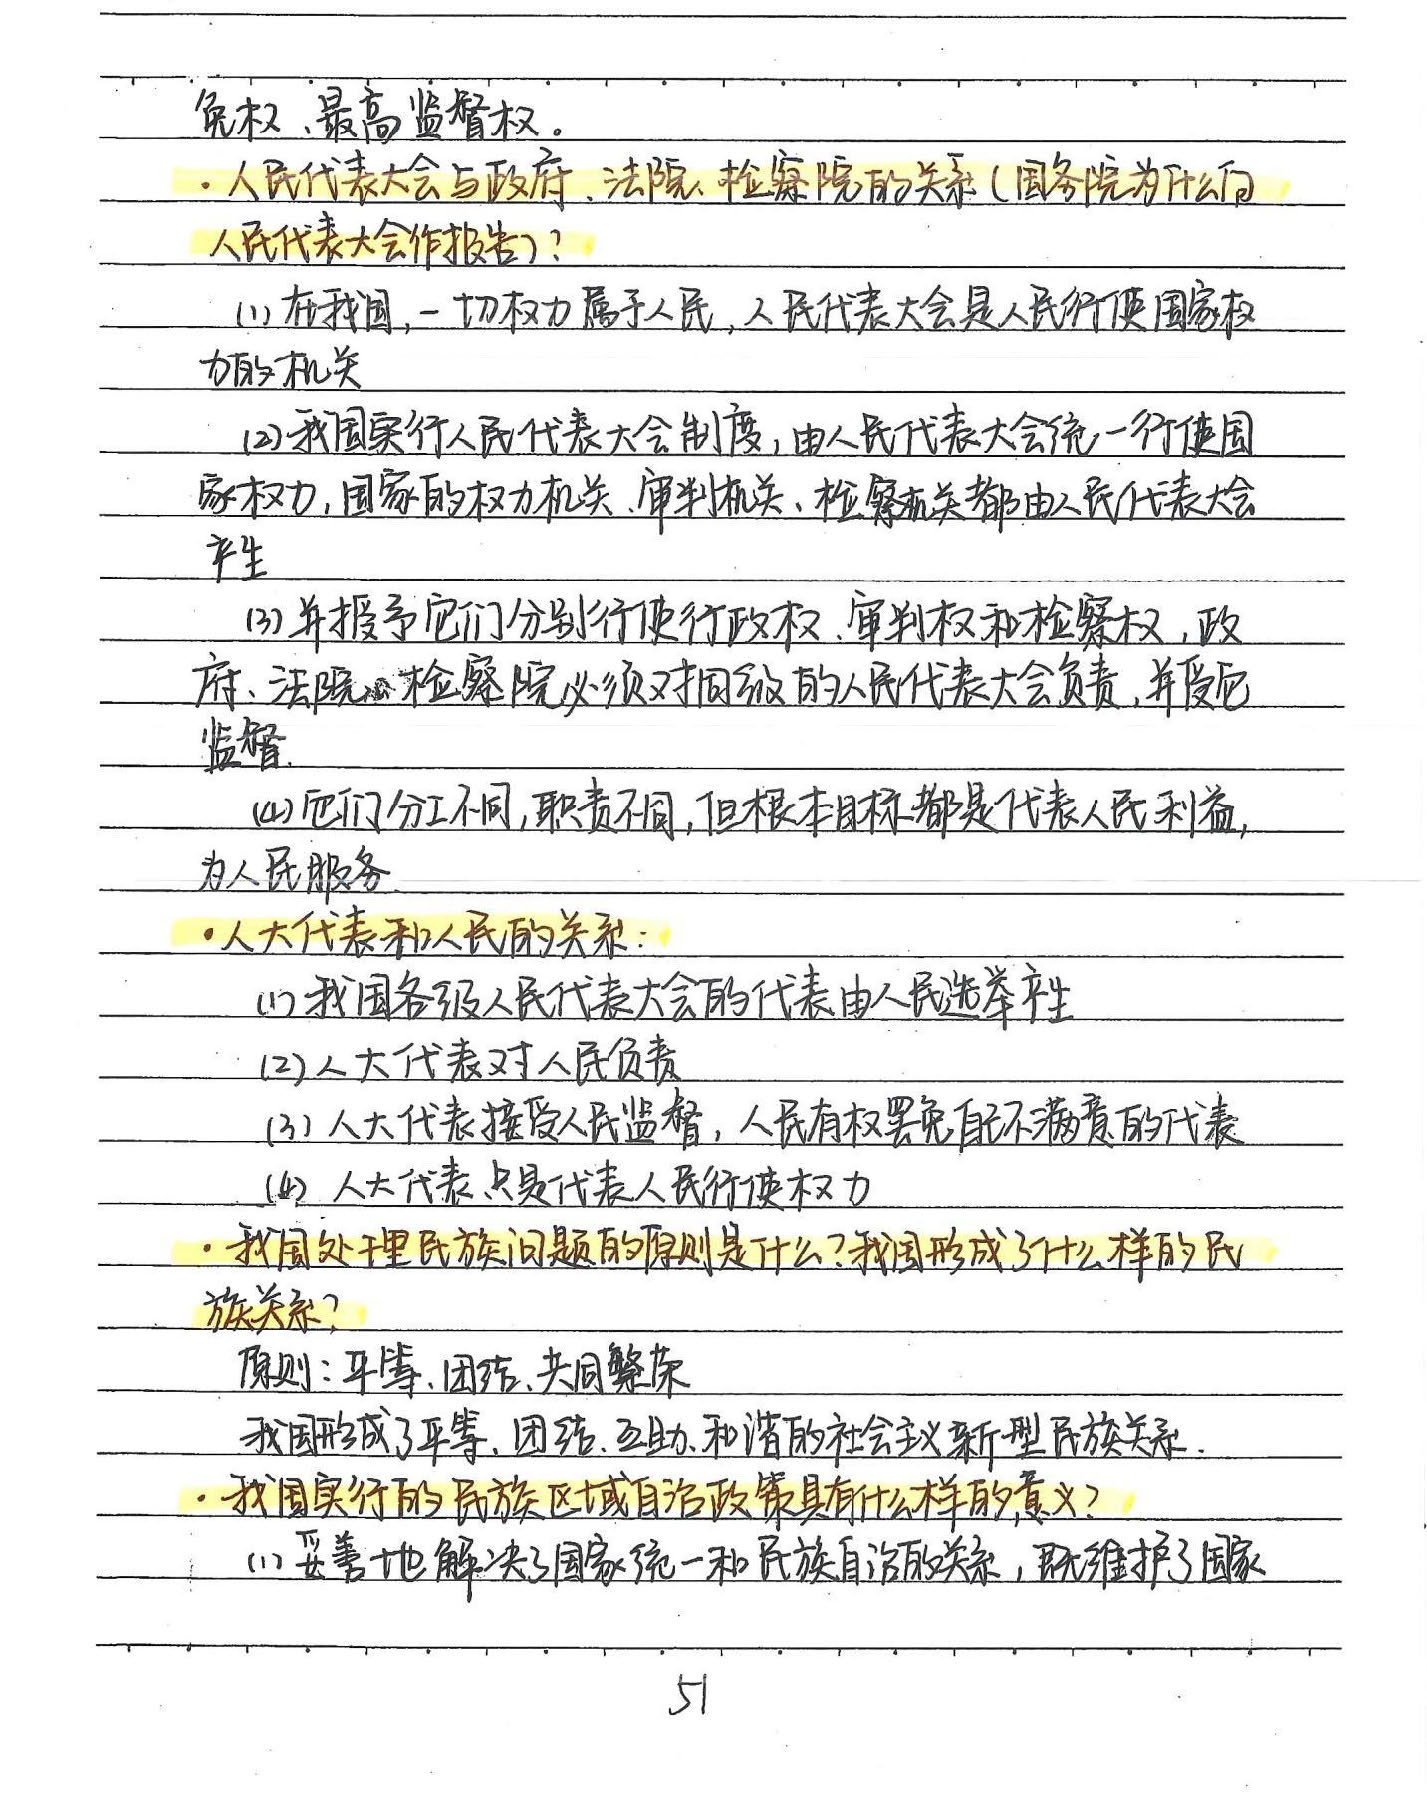 免权、最高监督权。
·人民代表大会与政府、法院、检察院的关系(国务院为什么向
人民代表大会作报告)?
(1)在我国,一切权力属于人民,人民代表大会是人民行使国家权
力的机关
(2)我国实行人民代表大会制度,由人民代表大会统一行使国
家权力,国家的权力机关、审判机关、检察机关都由人民代表大会
产生
(3)并授予它们分别行使行政权、审判权和检察权,政
府、法院、检察院必须对同级的人民代表大会负责,并受它
监督.
(4)它们分工不同,职责不同,但根本目标都是代表人民利益,
为人民服务.
·人大代表和人民的关系:
(1)我国各级人民代表大会的代表由人民选举产生
(2)人大代表对人民负责
(3)人大代表接受人民监督,人民有权罢免自己不满意的代表
(4)人大代表只是代表人民行使权力
·我国处理民族问题的原则是什么?我国形成了什么样的民
族关系?
原则:平等、团结、共同繁荣
我国形成了平等、团结、互助、和谐的社会主义新型民族关系.
·我国实行的民族区域自治政策具有什么样的意义?
(1)妥善地解决了国家统一和民族自治的关系,既维护了国家
51